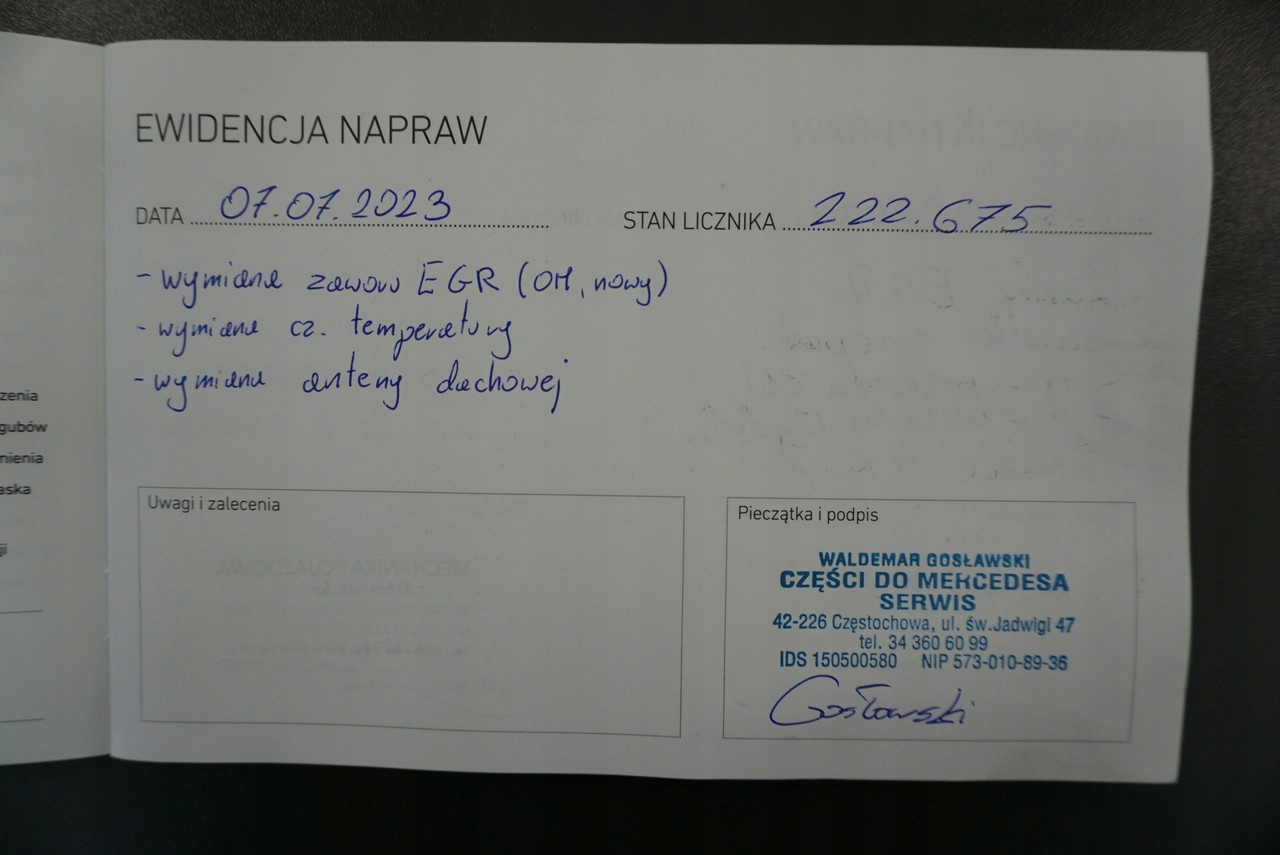 EWIDENCJA NAPRAW
DATA 07.07.2023 STAN LICZNIKA 222.675
- wymiana zaworu EGR (OM, nowy)
- wymiana cz. temperatury
- wymiana anteny dachowej
zenia
gubów
nienia
aska
ji
Uwagi i zalecenia
Pieczątka i podpis
WALDEMAR GOSŁAWSKI
CZĘŚCI DO MERCEDESA
SERWIS
42-226 Częstochowa, ul. św.Jadwigi 47
tel. 34 360 60 99
IDS 150500580 NIP 573-010-89-36
Gosławski